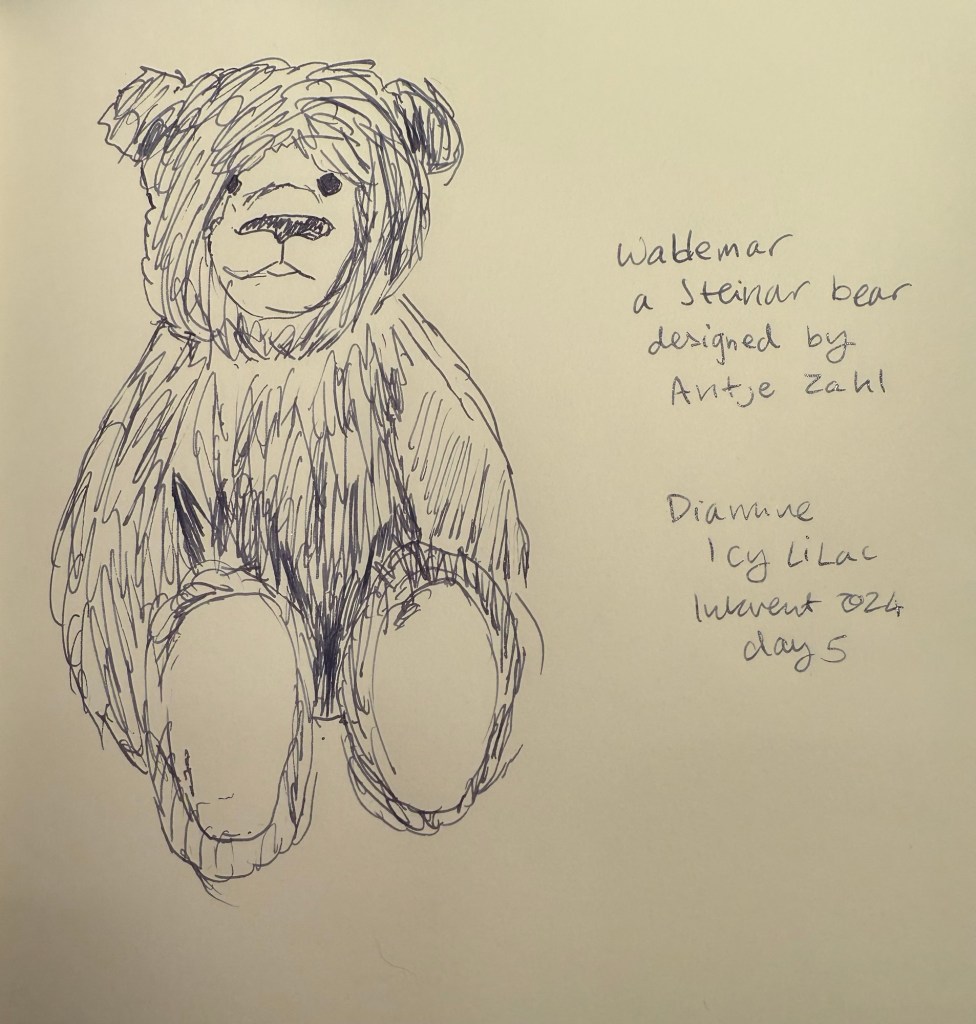 Waldemar
a Steinar bear
designed by
Antje Zahl
Diamine
Icy Lilac
Inkvent 2024
day 5